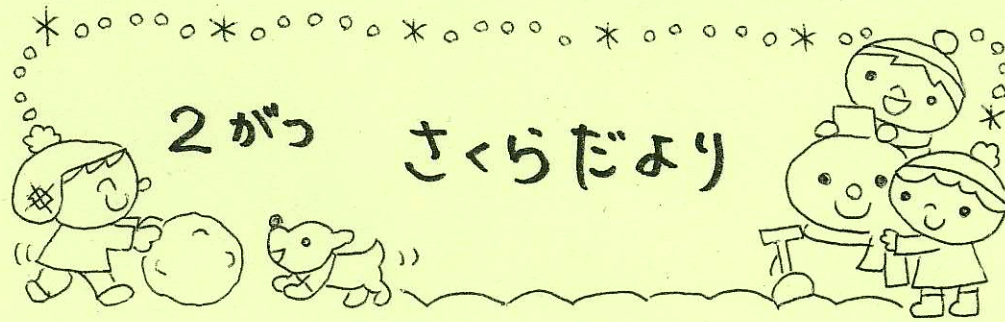 2がつ さくらだより